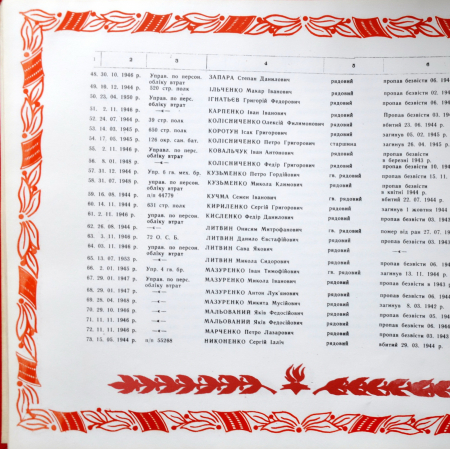 1 2 3 4 5 6
48. 30. 10. 1946 р. Управ. по персон. ЗАПАРА Степан Данилович рядовий пропав безвісти 06. 194
обліку втрат
49. 10. 12. 1944 р. 520 стр. полк ІЛЬЧЕНКО Макар Іванович рядовий пропав безвісти 02. 194
50. 23. 06. 1950 р. Управ. по перс. ІГНАТЬЄВ Григорій Федорович рядовий пропав безвісти 06. 194
обліку втрат
51. 2. 11. 1946 р. —«— КАРПЕНКО Іван Іванович рядовий Пропав безвісти 03. 194
52. 24. 07. 1944 р. 39 стр. полк КОЛІСНИЧЕНКО Олексій Филимонович рядовий вбитий 23. 06. 1944 р.
53. 14. 03. 1945 р. 650 стр. полк КОРОТУН Ілля Григорович рядовий загинув 05. 02. 1945 р.
54. 17. 05. 1945 р. 126 окр. сан. бат. КОЛІСНИЧЕНКО Петро Григорович старшина загинув 26. 04. 1945 р.
55. 2. 11. 1946 р. Управл. по перс. КОВАЛЬЧУК Іван Антонович рядовий пропав безвісти
обліку втрат в березні 1943 р.
56. 8. 01. 1948 р. —«— КОЛІСНИЧЕНКО Федір Григорович рядовий пропав безвісти 10. 194
57. 31. 12. 1944 р. Упр. 5 гв. мех. бр. КУЗЬМЕНКО Петро Гордійович гв. рядовий пропав безвісти 15. 11.
58. 31. 07. 1948 р. управ. по персон. КУЗЬМЕНКО Микола Климович рядовий пропав безвісти
обліку втрат в квітні 1944 р.
59. 16. 08. 1944 р. п/п 44779 КУЧМА Семен Іванович гв. рядовий вбитий 22. 07. 1944 р.
60. 14. 11. 1944 р. 631 стр. полк КИРИЛЕНКО Сергій Григорович рядовий загинув 1 жовтня 1944
61. 2. 11. 1946 р. управ. по персон. КИСЛЕНКО Федір Данилович рядовий пропав безвісти 03. 194
обліку втрат
62. 26. 08. 1944 р. —«— ЛИТВИН Онисим Митрофанович гв. рядовий помер від ран 27. 07. 19
63. 3. 11. 1948 р. 72 О. С. Б. ЛИТВИН Данило Євстафійович рядовий пропав безвісти 03. 194
64. 03. 11. 1948 р. управ. по персон. ЛИТВИН Сава Якович рядовий —«—
обліку втрат
65. 13. 07. 1953 р. —«— ЛИТВИН Микола Сидорович рядовий пропав безвісти 06. 194
66. 2. 01. 1945 р. Упр. 4 гв. бр. МАЗУРЕНКО Іван Тимофійович гв. рядовий загинув 13. 11. 1944 р.
67. 29. 01. 1947 р. Управ. по перс. МАЗУРЕНКО Микола Іванович рядовий пропав безвісти в 1943 р
обліку втрат
68. 29. 01. 1947 р. —«— МАЗУРЕНКО Антон Лук'янович рядовий пропав безвісти 06. 194
69. 29. 04. 1949 р. МАЗУРЕНКО Микита Мусійович рядовий загинув 8. 05. 1942 р.
70. 29. 10. 1946 р. —«— МАЛЬОВАНИЙ Яків Федосійович рядовий пропав безвісти 05. 194
71. 11. 11. 1946 р. —«— МАЛЬОВАНИЙ Яків Федосійович рядовий пропав безвісти 06. 194
72. 11. 11. 1948 р. —«— МАРЧЕНКО Петро Лазарович рядовий пропав безвісти 03. 194
73. 13. 05. 1944 р. п/п 55288 НИКОНЕНКО Сергій Ілліч рядовий вбитий 29. 03. 1944 р.